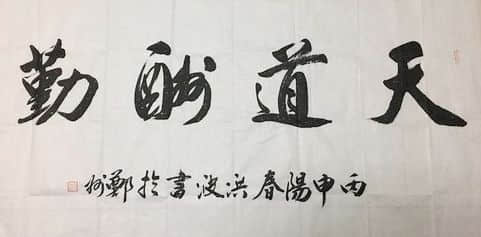 天道酬勤
丙申陽春洪波書於鄭州